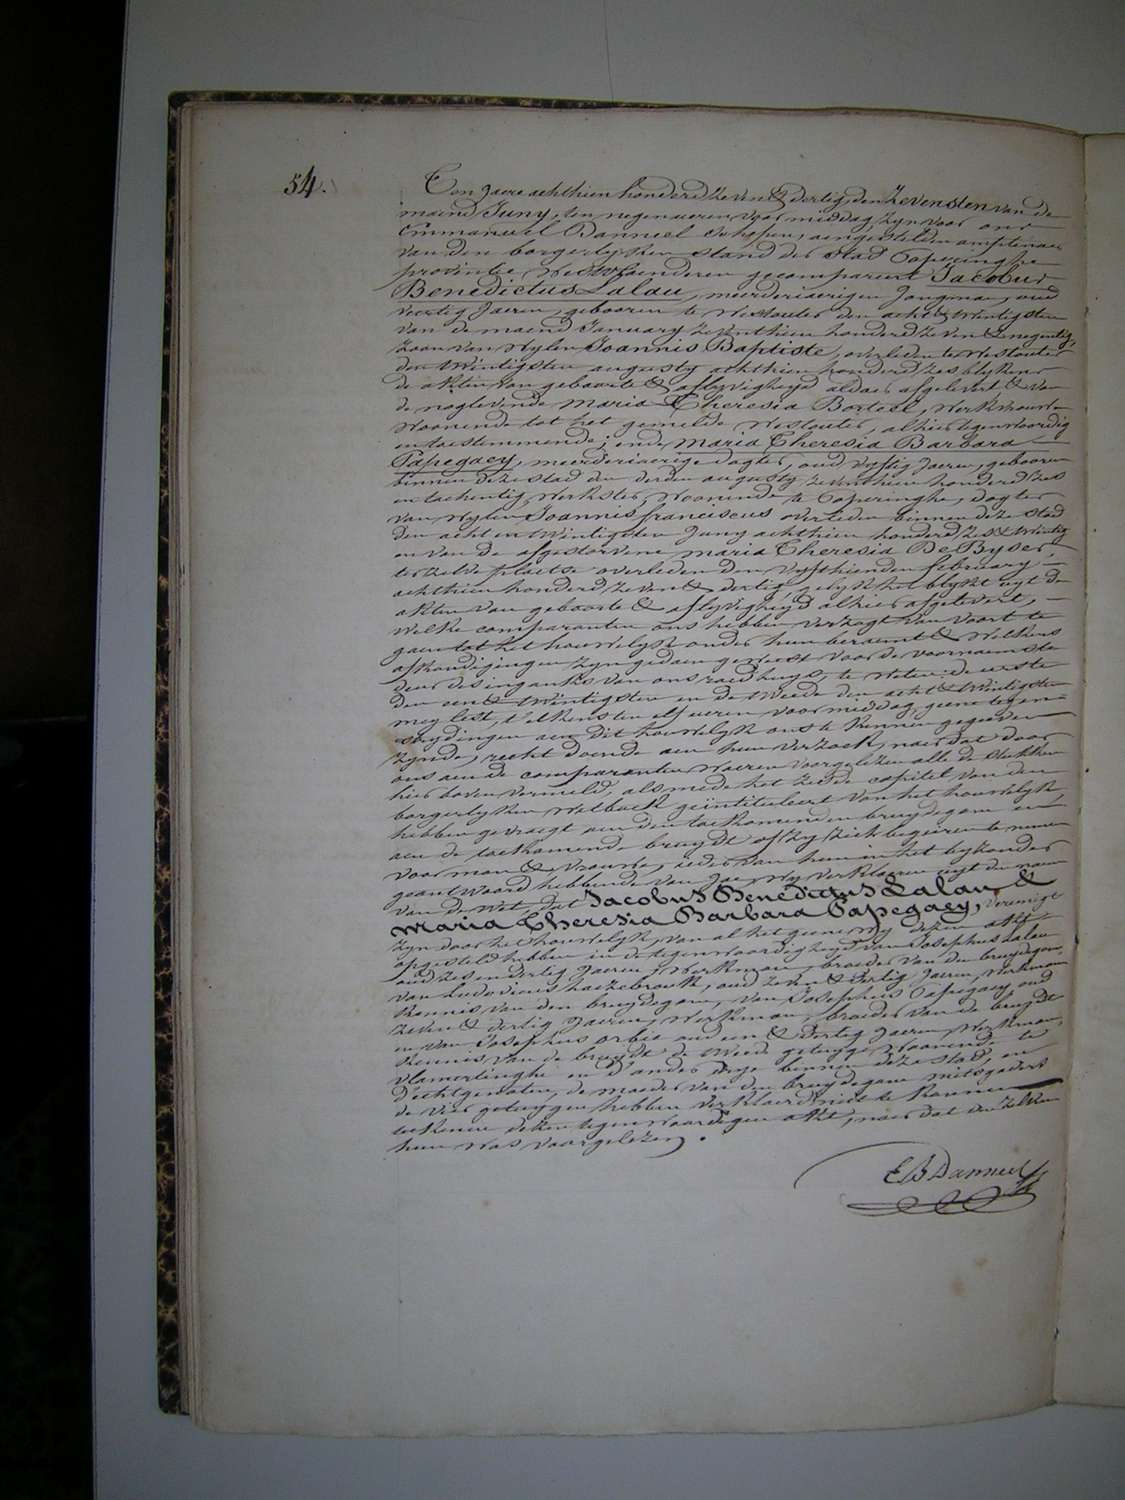 54.
Ten jaere achthien honderd zeven & dertig, den zevensten van de
maend Juny, ten negen ueren voor middag, zyn voor ons
Emmanuel Danneel Schepen, aengestelden amptenaer
van den borgerlyken stand der stad Poperinghe
provintie Westvlaenderen gecompareert Jacobus
Benedictus Lalau, meerderjaerigen jongman, oud
veertig jaeren, gebooren te Westouter den acht & twintigsten
van de maend January zeventhien honderd zeven & negentig,
zoon van wylen Joannis Baptiste, overleden te Westouter
den twintigsten augusty achthien honderd zes blykens
de akten van geboorte & aflyvigheyd aldaer afgelevert & van
de naglevende Maria Theresia Borteel, werkvrouw
woonende tot het gemelde Westouter, alhier tegenwoordig
en toestemmende; ende Maria Theresia Barbara
Papegaey, meerderjaerige dogter, oud vyftig jaeren, gebooren
binnen deze stad den derden augusty zeventhien honderd zes
en tachentig, werkster, woonende te Poperinghe, dogter
van wylen Joannis franciscus overleden binnen deze stad
den acht en twintigsten Juny achthien honderd zes & twintig
en van de afgestorvene Maria Theresia De Byser,
ter zelve plaetse overleden den vyfthienden february
achthien honderd zeven & dertig, gelyk het blykt uyt de
akten van geboorte & aflyvigheyd alhier afgelevert,
welke comparanten ons hebben verzogt van voort te
gaen tot het houwelyk onder hun beraemt & welkers
afkondigingen zyn gedaen geweest voor de voornaemste
deur des ingangs van ons raedhuys, te weten: de eerste
den een & twintigsten en de tweede den acht & twintigsten
mey lest, t'elkensten elf ueren voormiddag, geene tegen-
strydingen aen dit houwelyk ons te kennen gegeeven
zynde, recht doende aen hun verzoek, naer dat door
ons aen de comparanten waeren voorgelezen alle de stukken
hier boven vermeld, als mede het zesde capitel van den
borgerlyken wetboek geïntituleert van het houwelyk,
hebben gevraegt aen den toekomenden bruydegom en
aen de toekomende bruydt of zy ziek begeeren te nemen
voor man & vrouwe, ieder van hun in het byzonder
geantwoord hebbende van Jae, wy verklaeren uyt den naem
van de wet, dat Jacobus Benedictus Lalau &
Maria Theresia Barbara Papegaey, vereenigt
zyn door het houwelyk, van al het geene wy dezen akt
opgesteld hebben in de tegenwoordigheyd van Josephus Lalau
oud zes en dertig jaeren, werkman, broeder van den bruydegom,
van Ludovicus haezebrouck, oud zeven & dertig jaeren, werkman
kennis van den bruydegom, van Josephus Papegaey, oud
zeven & dertig jaeren, werkman, broeder van de bruydt
en van Josephus orbie oud een & dertig jaeren, werkman,
kennis van de bruydt de tweede getuyge woonende te
vlamertinghe en d'ander drye binnen deze stad, en
d'echtgenoten, de moeder van den bruydegom mitsgaders
de vier getuygen hebben verklaerd niet te konnen
teekenen dezen tegenwoordigen akt, naer dat den zelven
hun was voorgelezen.
E B Danneel